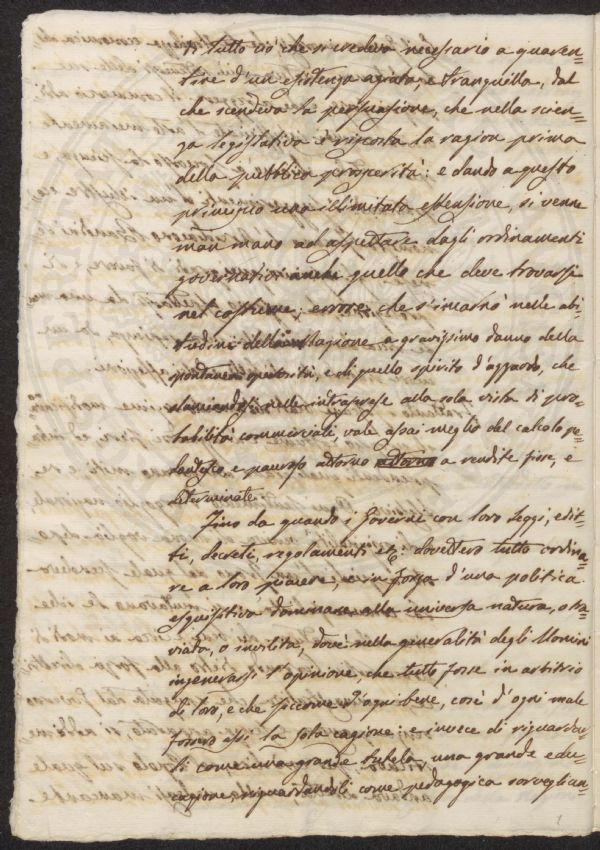 ti tutto ciò che si credeva necessario a guaren=
tire d'un esistenza agiata, e tranquilla, dal
che scendeva la persuasione, che nella scien=
za legislativa è riposta la ragion prima
della pubblica prosperità: e dando a questo
principio una illimitata estensione, si venne
man mano ad aspettare dagli ordinamenti
governativi anche quello che deve trovarsi
nel costume; errore, che s'incarnò nelle abi=
tudini della Nazione a gravissimo danno della
spontanea operosità, e di quello spirito d'azzardo, che
slanciandosi nelle intraprese alla sola vista di pro=
babilità commerciali, vale assai meglio del calcolo pe=
dantesco, e pauroso attorno a rendite fisse, e
determinate.
Fino da quando i Governi con loro Leggi, edit=
ti, decreti, regolamenti etc. dovettero tutto ordina=
re a loro piacere, e in forza d'una politica
inquisitiva dominare alla universa natura, o tra=
viata, o invilita, dovè nella generalità degli Uomini
ingenerarsi l'opinione, che tutto fosse in arbitrio
di loro, e che siccome d'ogni bene, così d'ogni male
fossero essi la sola cagione: e invece di riguardar=
li come una grande tutela, una grande edu=
cazione, riguardandoli come pedagogica sorveglian=